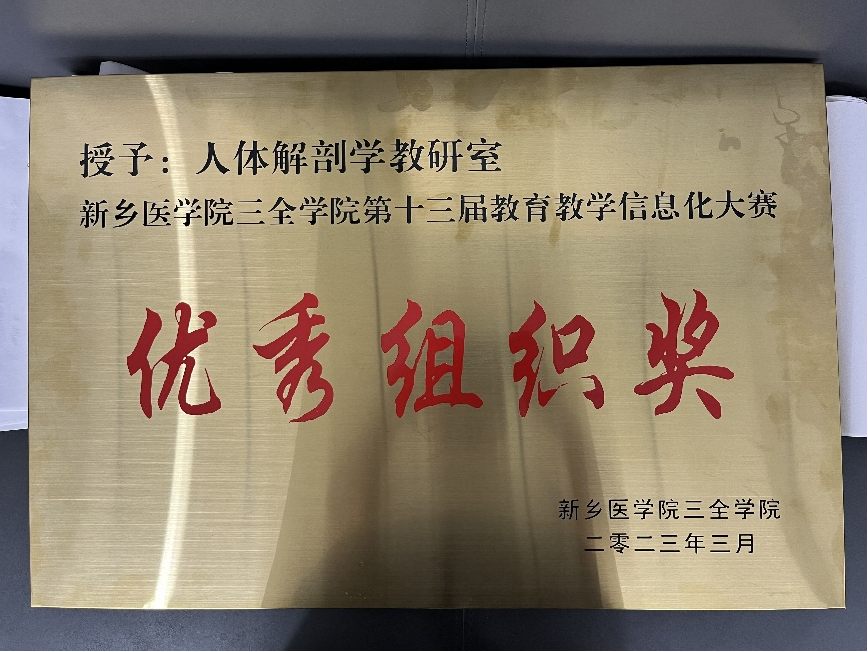 授予：人体解剖学教研室
新乡医学院三全学院第十三届教育教学信息化大赛
优秀组织奖
新乡医学院三全学院
二零二三年三月